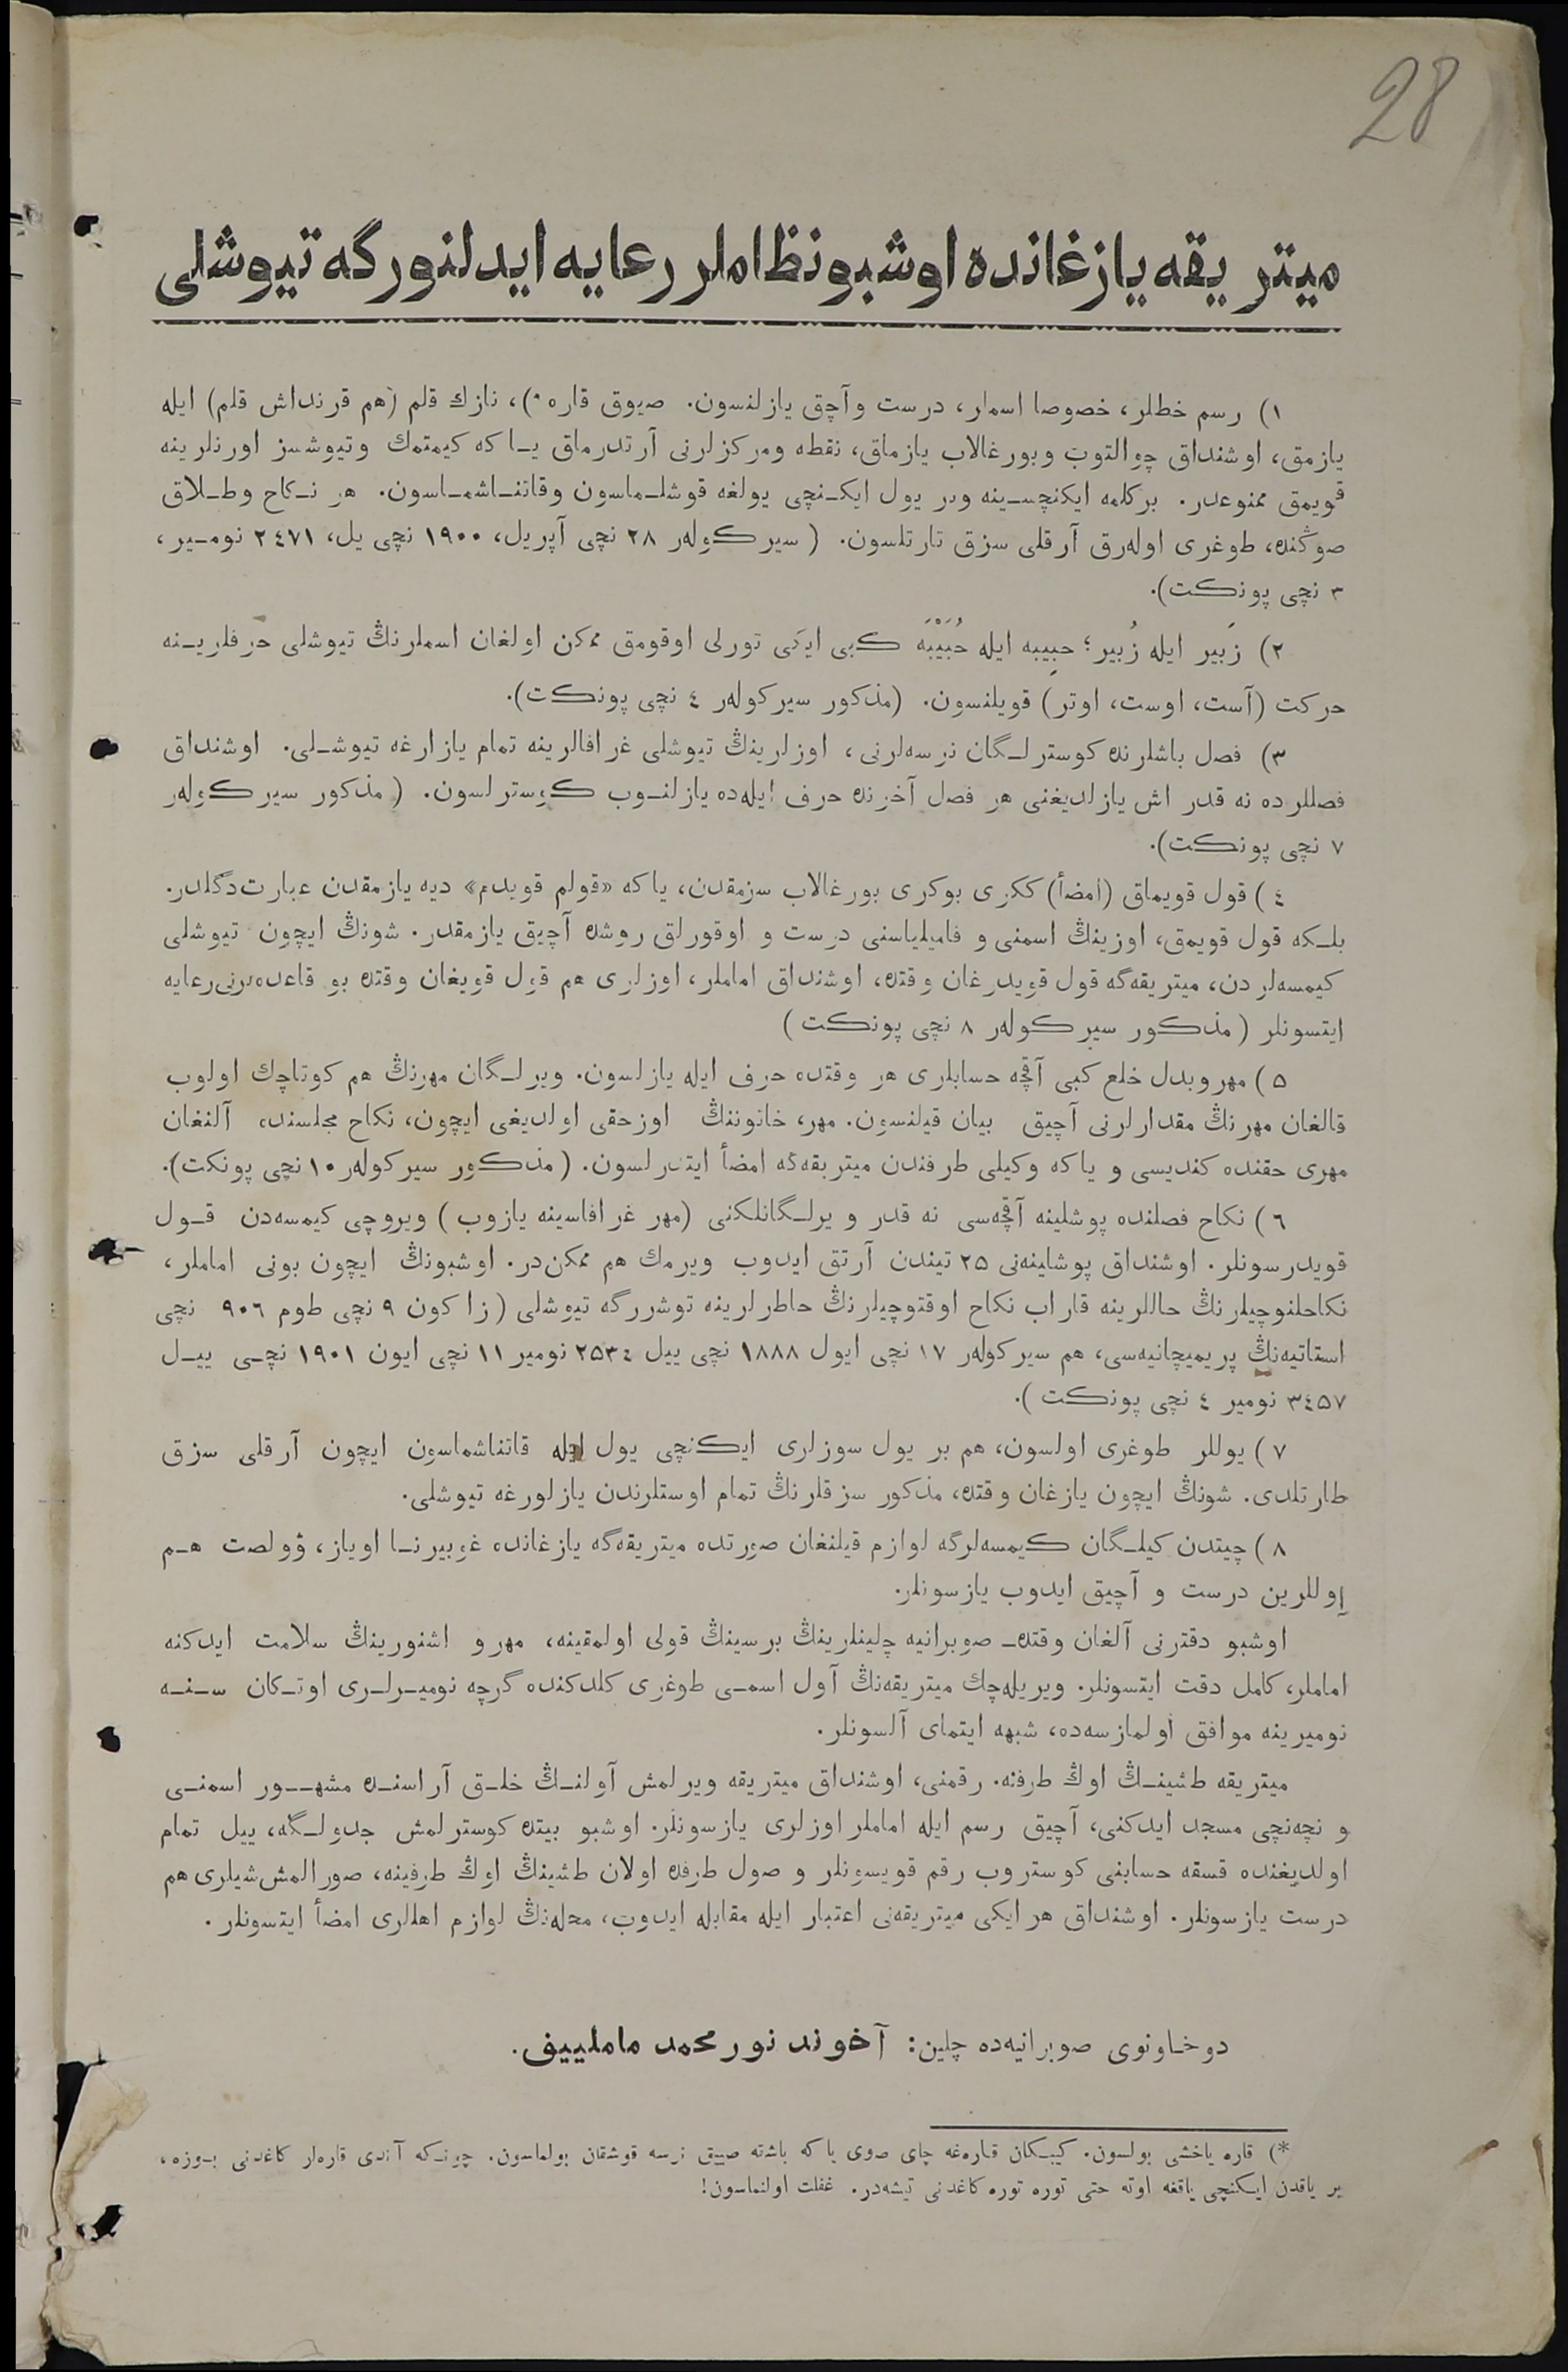 28
ميتريقه يازغانده اوشبو نظاملر رعايه ايدلنورگه تيوشلى
١) رسم خطلر، خصوصا اسملر، درست وآچق يازلنسون. صيوق قاره *)، نازك قلم (هم قرنداش قلم) ايله
يازمق، اوشنداق چوالتوب وبورغالاب يازماق، نقطه ومركزلرنى آرتدرماق يا كه كيمتمك وتيوشسز اورنلرينه
قويمق ممنوعدر. بركلمه ايكنچسينه وبر يول ايكنچى يولغه قوشلماسون وقاتناشماسون. هر نكاح وطلاق
صوڭنده، طوغرى اوله‌رق آرقلى سزق تارتلسون. (سيركولەر ٢٨ نچى آپريل، ١٩٠٠ نچى يل، ٢٤٧١ نومير،
٣ نچى پونكت).
٢) زَبير ايله زُبير؛ حبِيبه ايله حُبَيْبَه كبى ايكى تورلى اوقومق ممكن اولغان اسملرنڭ تيوشلى حرفلرينه
حركت (آست، اوست، اوتر) قويلنسون. (مذكور سيركولەر ٤ نچى پونكت).
٣) فصل باشلرنده كوسترلگان نرسه‌لرنى، اوزلرينڭ تيوشلى غرافالرينه تمام يازارغه تيوشلى. اوشنداق
فصللرده نه قدر اش يازلديغنى هر فصل آخرنده حرف ايله‌ده يازلنوب كوسترلسون. (مذكور سيركولەر
٧ نچى پونكت).
٤) قول قويماق (امضأ) ككرى بوكرى بورغالاب سزمقدن، ياكه «قولم قويدم» ديه يازمقدن عبارت دگلدر.
بلكه قول قويمق، اوزينڭ اسمنى و فاميلياسنى درست و اوقورلق روشده آچيق يازمقدر. شونڭ ايچون تيوشلى
كيمسه‌لردن، ميتريقه‌گه قول قويدرغان وقتده، اوشنداق اماملر، اوزلرى هم قول قويغان وقتده بو قاعده‌لرنى رعايه
ايتسونلر (مذكور سيركولەر ٨ نچى پونكت)
٥) مهر وبدل خلع كبى آقچه حسابلرى هر وقتده حرف ايله يازلسون. ويرلگان مهرنڭ هم كوتاچك اولوب
قالغان مهرنڭ مقدارلرنى آچيق بيان قيلنسون. مهر، خاتوننڭ اوزحقى اولديغى ايچون، نكاح مجلسنده آلنغان
مهرى حقنده كنديسى و ياكه وكيلى طرفندن ميتريقه‌گه امضأ ايتدرلسون. (مذكور سيركولەر ١٠ نچى پونكت).
٦) نكاح فصلنده پوشلينه آقچه‌سى نه قدر ويرلگانلكنى (مهر غرافاسينه يازوب) ويروچى كيمسه‌دن قول
قويدرسونلر. اوشنداق پوشلينه‌نى ٢٥ تيندن آرتق ايدوب ويرمك هم ممكن‌در. اوشبونڭ ايچون بونى اماملر،
نكاحلنوچيلرنڭ حاللرينه قاراب نكاح اوقتوچيلرنڭ خاطرلرينه توشررگه تيوشلى (زاكون ٩ نچى طوم ٩٠٦ نچى
استاتيه‌نڭ پريميچانيه‌سى، هم سيركولەر ١٧ نچى ايول ١٨٨٨ نچى ييل ٢٥٣٤ نومير ١١ نچى ايون ١٩٠١ نچى ييل
٣٤٥٧ نومير ٤ نچى پونكت).
٧) يوللر طوغرى اولسون، هم بر يول سوزلرى ايكنچى يول ايله قاتناشماسون ايچون آرقلى سزق
طارتلدى. شونڭ ايچون يازغان وقتده، مذكور سزقلرنڭ تمام اوستلرندن يازلورغه تيوشلى.
٨) چيتدن كيلگان كيمسه‌لرگه لوازم قيلنغان صورتده ميتريقه‌گه يازغانده غوبيرنا اوياز، ۋولصت هم
آوللرين درست و آچيق ايدوب يازسونلر.
اوشبو دفترنى آلغان وقتده صوبرانيه چلينلرينڭ برسينڭ قولى اولمقينه، مهر و اشنورينڭ سلامت ايدكنه
اماملر، كامل دقت ايتسونلر. ويريله‌چك ميتريقه‌نڭ آول اسمى طوغرى كلدكنده گرچه نوميرلرى اوتكان سنه
نوميرينه موافق اولمازسه‌ده، شبهه ايتماى آلسونلر.
ميتريقه طشينڭ اوڭ طرفنه رقمنى، اوشنداق ميتريقه ويرلمش آولنڭ خلق آراسنده مشهور اسمنى
و نچه‌نچى مسجد ايدكنى، آچيق رسم ايله اماملر اوزلرى يازسونلر. اوشبو بيتده كوسترلمش جدولگه، ييل تمام
اولديغنده قسقه حسابنى كوستروب رقم قويسونلر و صول طرفده اولان طشينڭ اوڭ طرفينه، صورالمش شيلرى هم
درست يازسونلر. اوشنداق هر ايكى ميتريقه‌نى اعتبار ايله مقابله ايدوب، محله‌نڭ لوازم اهللرى امضأ ايتسونلر.
دوخاونوى صوبرانيه‌ده چلين: آخوند نورمحمد ماملييف.
*) قاره ياخشى بولسون. كيبكان قاره‌غه چاى صوى ياكه باشته صيق نرسه قوشقان بولماسون. چونكه آندى قاره‌لر كاغدنى بوزه،
بر ياقدن ايكنچى ياقغه اوته حتى توره توره كاغدنى تيشه‌در. غفلت اولنماسون!